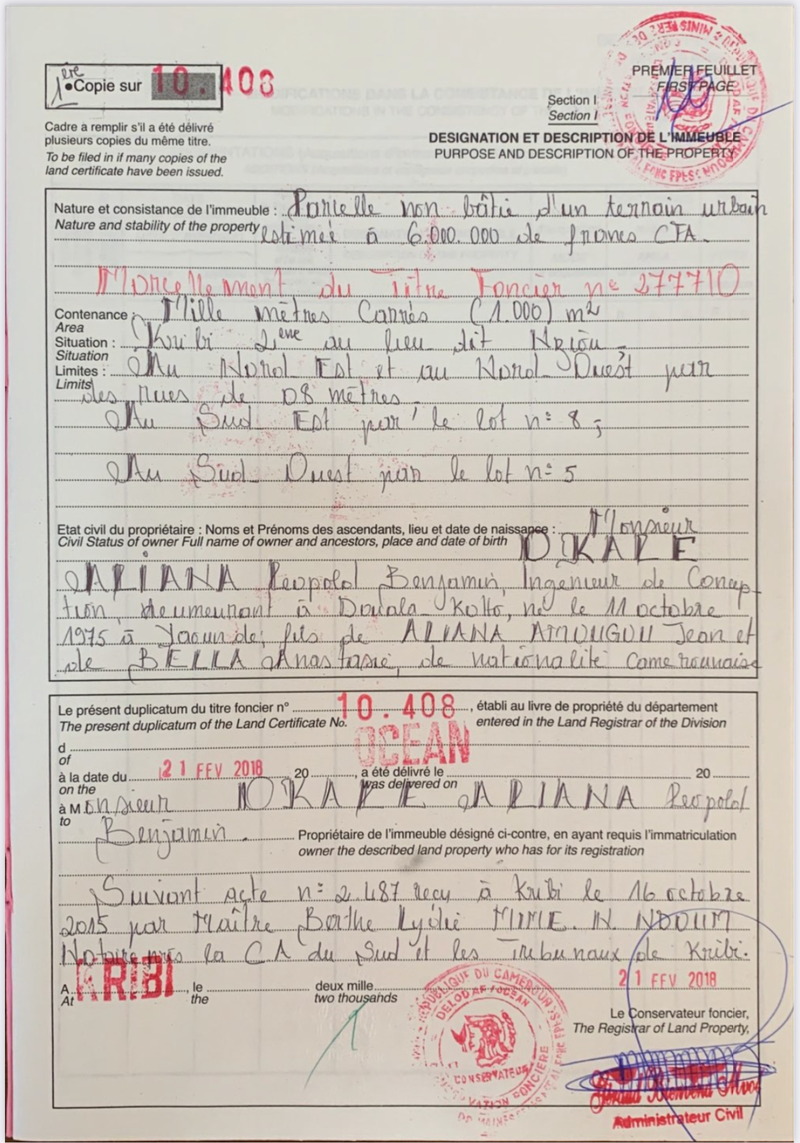 1ère
•Copie sur 10.408
Cadre à remplir s'il a été délivré
plusieurs copies du même titre.
To be filed in if many copies of the
land certificate have been issued.
PREMIER FEUILLET
FIRST PAGE
Section I
Section I
DESIGNATION ET DESCRIPTION DE L'IMMEUBLE
PURPOSE AND DESCRIPTION OF THE PROPERTY
Nature et consistance de l'immeuble : Parcelle non bâtie d'un terrain urbain
Nature and stability of the property estimée à 6.000.000 de francs CFA.
Morcellement du Titre Foncier n° 277710
Contenance : Mille mètres Carrés (1.000) m2
Area
Situation : Kribi 2ème au lieu dit
Situation
Limites : Au Nord Est et au Nord-Ouest par
Limits des rues de 08 mètres.
Au Sud Est par le lot n° 8 ;
Au Sud Ouest par le lot n° 5
Etat civil du propriétaire : Noms et Prénoms des ascendants, lieu et date de naissance : Monsieur
Civil Status of owner Full name of owner and ancestors, place and date of birth OKALE
ALIANA Léopold Benjamin, Ingénieur de Concep-
tion, deumeurant à Douala-Kotto, né le 11 octobre
1975 à Yaoundé, fils de ALIANA AMOUGOU Jean et
de BELLA Anastasie, de nationalité Camerounaise
Le présent duplicatum du titre foncier n° 10.408, établi au livre de propriété du département
The present duplicatum of the Land Certificate No. entered in the Land Registrar of the Division
d OCEAN
of
à la date du 21 FEV 2018 20 , a été délivré le 20
on the was delivered on
à Monsieur OKALE ALIANA Léopold
to Benjamin. Propriétaire de l'immeuble désigné ci-contre, en ayant requis l'immatriculation
owner the described land property who has for its registration
Suivant acte n° 2.487 reçu à Kribi le 16 octobre
2015 par Maître Berthe Lydie MIME. N. NDOUM
Notaire près la CA du Sud et les Tribunaux de Kribi.
A KRIBI , le deux mille 21 FEV 2018
At the two thousands
Le Conservateur foncier,
The Registrar of Land Property,
REPUBLIQUE DU CAMEROUN
CONSERVATEUR
Administrateur Civil